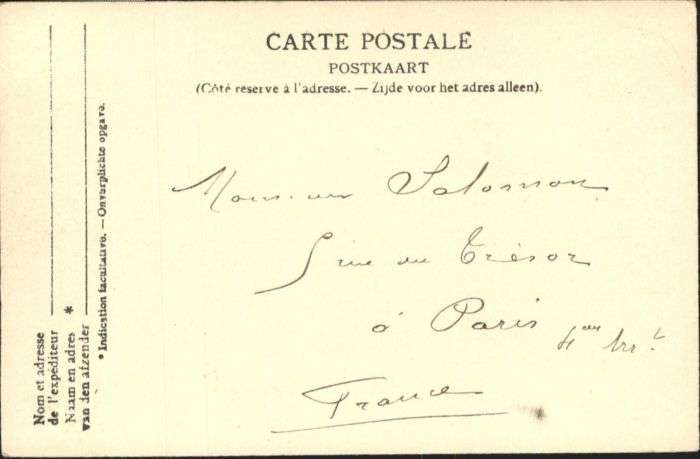 CARTE POSTALE
POSTKAART
(Côté reserve à l'adresse. — Zijde voor het adres alleen).
Monsieur Salomon
5 rue du Trésor
à Paris
4me Arrt
France
Nom et adresse
de l'expéditeur
Naam en adres *
van den afzender
* Indication facultative. — Onverplichte opgave.